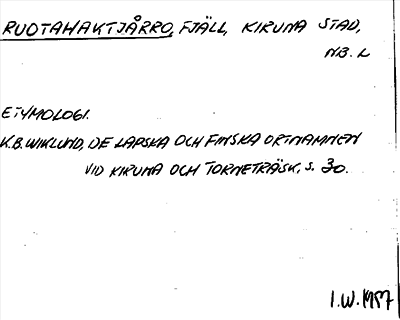 RUOTAHAKTJÅRRO, FJÄLL, KIRUNA STAD,
NB. L
ETYMOLOGI.
K.B. WIKLUND, DE LAPSKA OCH FINSKA ORTNAMNEN
VID KIRUNA OCH TORNETRÄSK, S. 30.
I.W. 1987